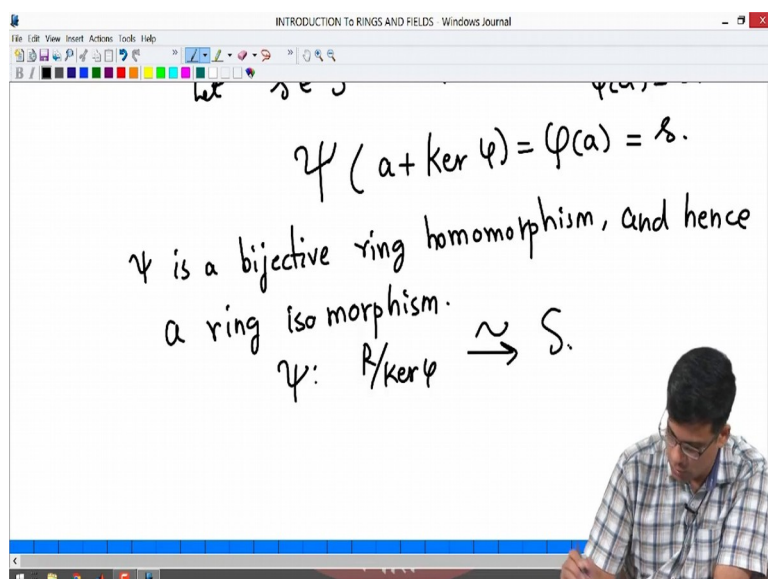 INTRODUCTION To RINGS AND FIELDS - Windows Journal
File Edit View Insert Actions Tools Help
B I
Let s ∈ S
Ψ ( a + ker φ) = φ(a) = s.
Ψ is a bijective ring homomorphism, and hence
a ring isomorphism.
Ψ: R/ker φ ⥲ S.